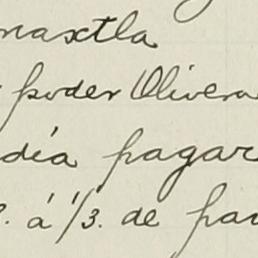 naxtla
poder Olivera
día pagar
á 1/3. de pa